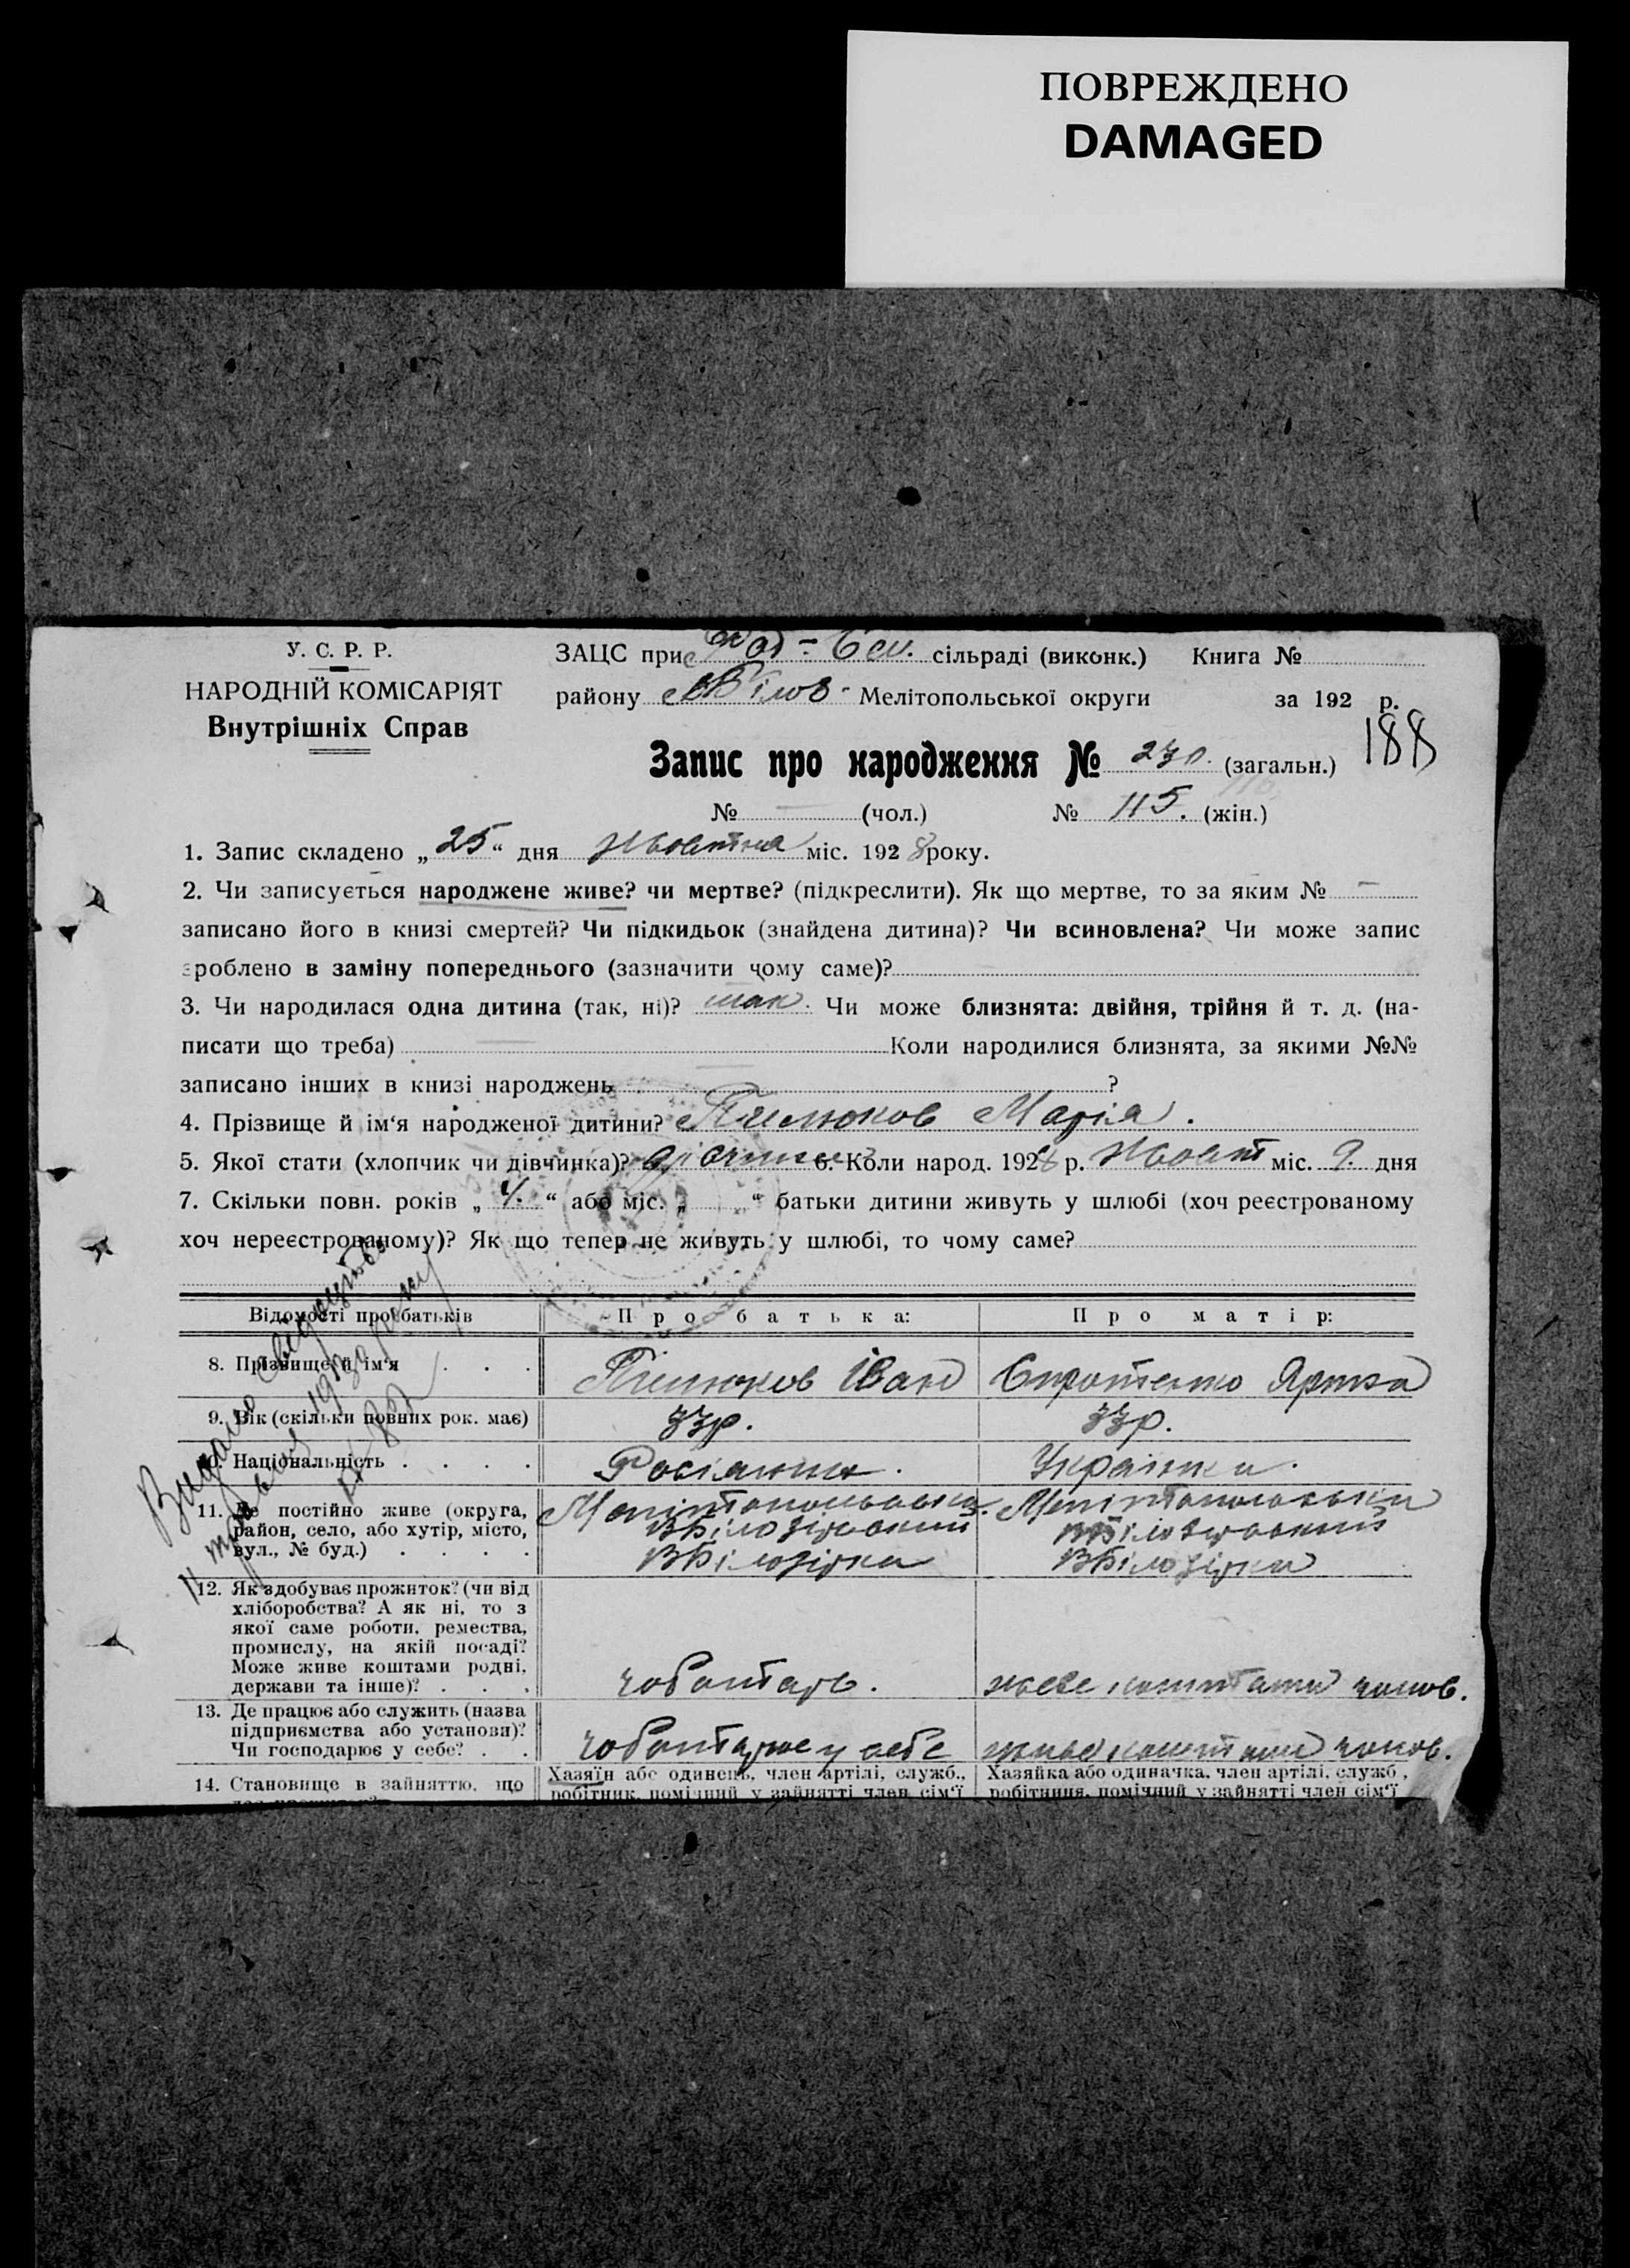 ПОВРЕЖДЕНО
DAMAGED
У. С. Р. Р.
НАРОДНІЙ КОМІСАРІЯТ
Внутрішніх Справ
ЗАЦС при сільраді (виконк.) Книга №
району Мелітопольської округи за 192 р.
188
Запис про народження № 230. (загальн.)
№ — (чол.) № 115. (жін.)
1. Запис складено „25“ дня Жовтня міс. 1928 року.
2. Чи записується народжене живе? чи мертве? (підкреслити). Як що мертве, то за яким № —
записано його в книзі смертей? Чи підкидьок (знайдена дитина)? Чи всиновлена? Чи може запис
зроблено в заміну попереднього (зазначити чому саме)?
3. Чи народилася одна дитина (так, ні)? так. Чи може близнята: двійня, трійня й т. д. (на-
писати що треба) Коли народилися близнята, за якими №№
записано інших в книзі народжень ?
4. Прізвище й ім‘я народженої дитини? Марія.
5. Якої стати (хлопчик чи дівчинка)? дівчинка 6. Коли народ. 1928 р. Жовт міс. 9. дня
7. Скільки повн. років „4.“ або міс. „ “ батьки дитини живуть у шлюбі (хоч реєстрованому
хоч нереєстрованому)? Як що тепер не живуть у шлюбі, то чому саме?
Відомості про батьків Про батька: Про матір:
8. Прізвище й ім‘я . . . Іван
9. Вік (скільки повних рок. має) 33р. 33р.
10. Національність . . . . Українка.
11. Де постійно живе (округа,
район, село, або хутір, місто,
вул., № буд.) . . . .
Мелітопольська Мелітопольська
ВБілозірський ВБілозірський
ВБілозірка ВБілозірка
12. Як здобуває прожиток? (чи від
хліборобства? А як ні, то з
якої саме роботи, ремества,
промислу, на якій посаді?
Може живе коштами родні,
держави та інше)? . . .
чоботарь. живе коштами чолов.
13. Де працює або служить (назва
підприємства або установи)?
Чи господарює у себе? . .
чоботарює у себе живе коштами чолов.
14. Становище в зайняттю, що
Хазяїн або одинець, член артілі, служб.,
робітник, помічний у зайнятті член сім‘ї
Хазяйка або одиначка, член артілі, служб.,
робітниця, помічний у зайнятті член сім‘ї
Видано свідоцтво